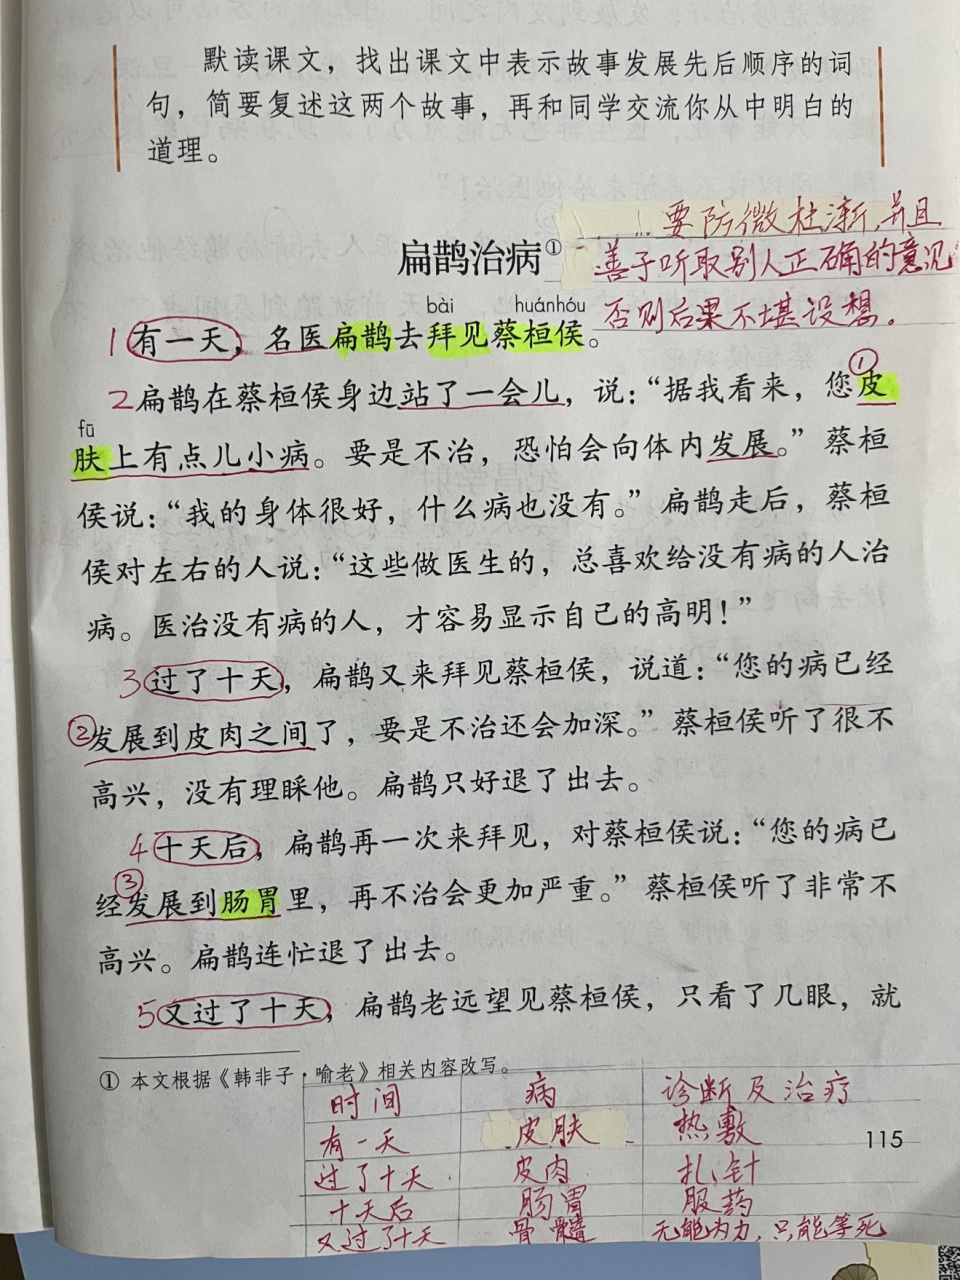 默读课文，找出课文中表示故事发展先后顺序的词
句，简要复述这两个故事，再和同学交流你从中明白的
道理。
要防微杜渐，并且
扁鹊治病①
善于听取别人正确的意见
bài huánhóu
否则后果不堪设想。
1有一天，名医扁鹊去拜见蔡桓侯。
①
2扁鹊在蔡桓侯身边站了一会儿，说：“据我看来，您皮
fū
肤上有点儿小病。要是不治，恐怕会向体内发展。”蔡桓
侯说：“我的身体很好，什么病也没有。”扁鹊走后，蔡桓
侯对左右的人说：“这些做医生的，总喜欢给没有病的人治
病。医治没有病的人，才容易显示自己的高明！”
3过了十天，扁鹊又来拜见蔡桓侯，说道：“您的病已经
②发展到皮肉之间了，要是不治还会加深。”蔡桓侯听了很不
高兴，没有理睬他。扁鹊只好退了出去。
4十天后，扁鹊再一次来拜见，对蔡桓侯说：“您的病已
③
经发展到肠胃里，再不治会更加严重。”蔡桓侯听了非常不
高兴。扁鹊连忙退了出去。
5又过了十天，扁鹊老远望见蔡桓侯，只看了几眼，就
① 本文根据《韩非子·喻老》相关内容改写。
时间 病 诊断及治疗
有一天 皮肤 热敷
115
过了十天 皮肉 扎针
十天后 肠胃 服药
又过了十天 骨髓 无能为力，只能等死